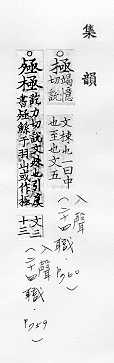 集韻
○極竭憶切說文棟也一曰中也至也文五
入聲(二十四職·P760)
○殛極訖力切說文殊也引虞書殛鯀于羽山或作極文二十三
(入聲二十四職·P759)